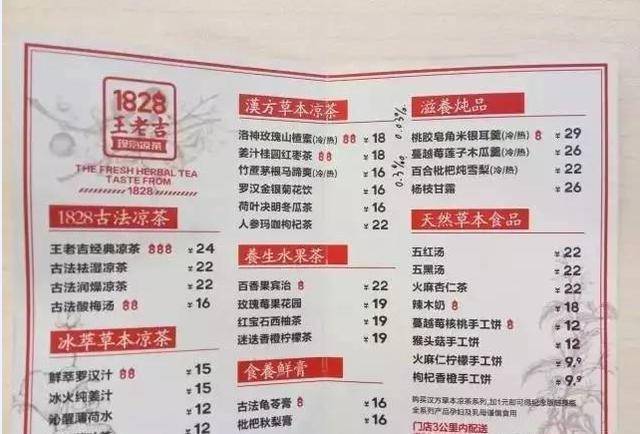 1828
王老吉
现泡凉茶
THE FRESH HERBAL TEA
TASTE FROM
1828
1828古法凉茶
王老吉经典凉茶 ¥24
古法祛湿凉茶 ¥22
古法润燥凉茶 ¥22
古法酸梅汤 ¥16
冰萃草本凉茶
鲜萃罗汉汁 ¥15
冰火纯姜汁 ¥15
沁醒薄荷水 ¥12
漢方草本凉茶
洛神玫瑰山楂素(冷/热) ¥18
姜汁桂圆红枣茶 ¥18
竹蔗茅根马蹄爽(冷/热) ¥16
罗汉金银菊花饮 ¥16
荷叶决明冬瓜茶 ¥16
人参玛咖枸杞茶 ¥22
0.03%
0.3‰
養生水果茶
百香果宾治 ¥22
玫瑰莓果花园 ¥19
红宝石西柚茶 ¥19
迷迭香橙柠檬茶 ¥19
食養鲜膏
古法龟苓膏 ¥16
枇杷秋梨膏 ¥16
滋養炖品
桃胶皂角米银耳羹(冷/热) ¥29
蔓越莓莲子木瓜羹(冷/热) ¥26
百合枇杷炖雪梨(冷/热) ¥22
杨枝甘露 ¥26
天然草本食品
五红汤 ¥22
五黑汤 ¥22
火麻杏仁茶 ¥22
辣木奶 ¥18
蔓越莓核桃手工饼 ¥12
猴头菇手工饼 ¥12
火麻仁柠檬手工饼 ¥9.9
枸杞香橙手工饼 ¥9.9
购买汉方草本凉茶系列,加1元即可得纪念版随身瓶
全系列产品孕妇及乳母谨慎食用
门店3公里内配送